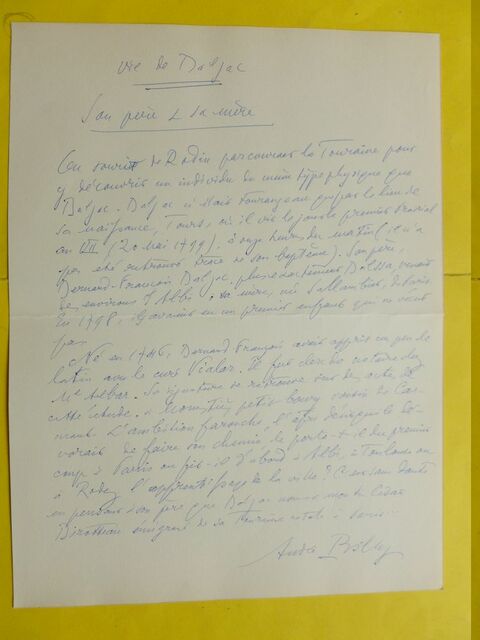 Vie de Balzac
Son père & sa mère
On sourit de Rodin parcourant la Touraine pour
y découvrir un individu du même type physique que
Balzac. Balzac n'était tourangeau que par le lieu de
sa naissance, Tours, où il vit le jour le premier prairial
an VII (20 mai 1799), à onze heures du matin (il n'a
pas été retrouvé trace de son baptême). Son père,
Bernard-François Balzac, plus exactement Balssa venait
des environs d'Albi, sa mère, née Sallambier, de Paris.
En 1798, ils avaient eu un premier enfant qui ne vécut
pas.
Né en 1746, Bernard-François avait appris un peu de
latin avec le curé Vialar. Il fut clerc de notaire chez
Me Albar. Sa signature se retrouve sur des actes de
cette étude, à Monestiés, petit bourg voisin de Car-
maux. L'ambition farouche, l'âpre désir qui le dé-
vorait de faire son chemin le porta-t-il du premier
coup à Paris ou fit-il d'abord à Albi, à Toulouse ou
à Rodez l'apprentissage de la ville ? C'est sans doute
en pensant à son père que Balzac nous a montré César
Birotteau émigrant de sa Touraine natale à Paris...
André Billy